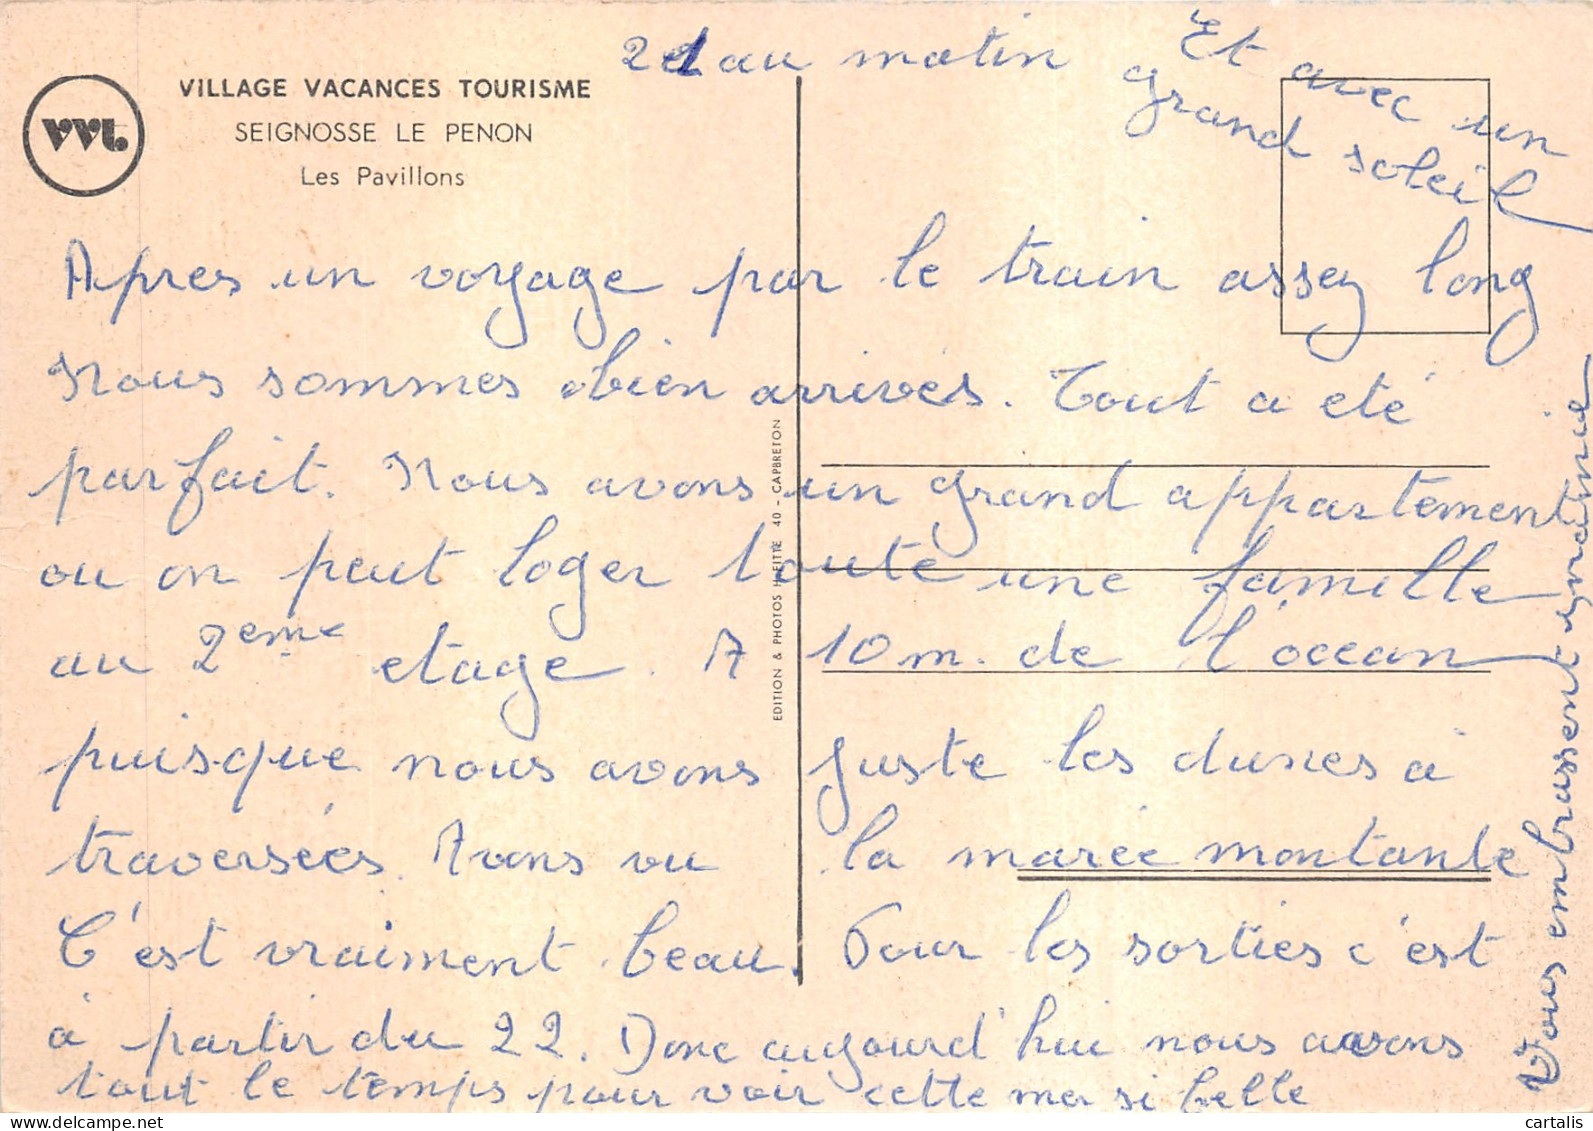 21 au matin
Et avec un
grand soleil
VILLAGE VACANCES TOURISME
SEIGNOSSE LE PENON
Les Pavillons
VVT
Apres un voyage par le train assez long
Nous sommes bien arrivés. Tout a eté
parfait. Nous avons un grand appartement
ou on peut loger toute une famille
au 2eme etage. A 10 m. de l'ocean
puisque nous avons juste les dunes à
traversées. Avons vu la marée montante
C'est vraiment beau. Pour les sorties c'est
à partir du 22. Donc aujourd'hui nous avons
tout le temps pour voir cette mer si belle
Vous embrassent
EDITION & PHOTOS HEITTE 40 - CAPBRETON
cartalis